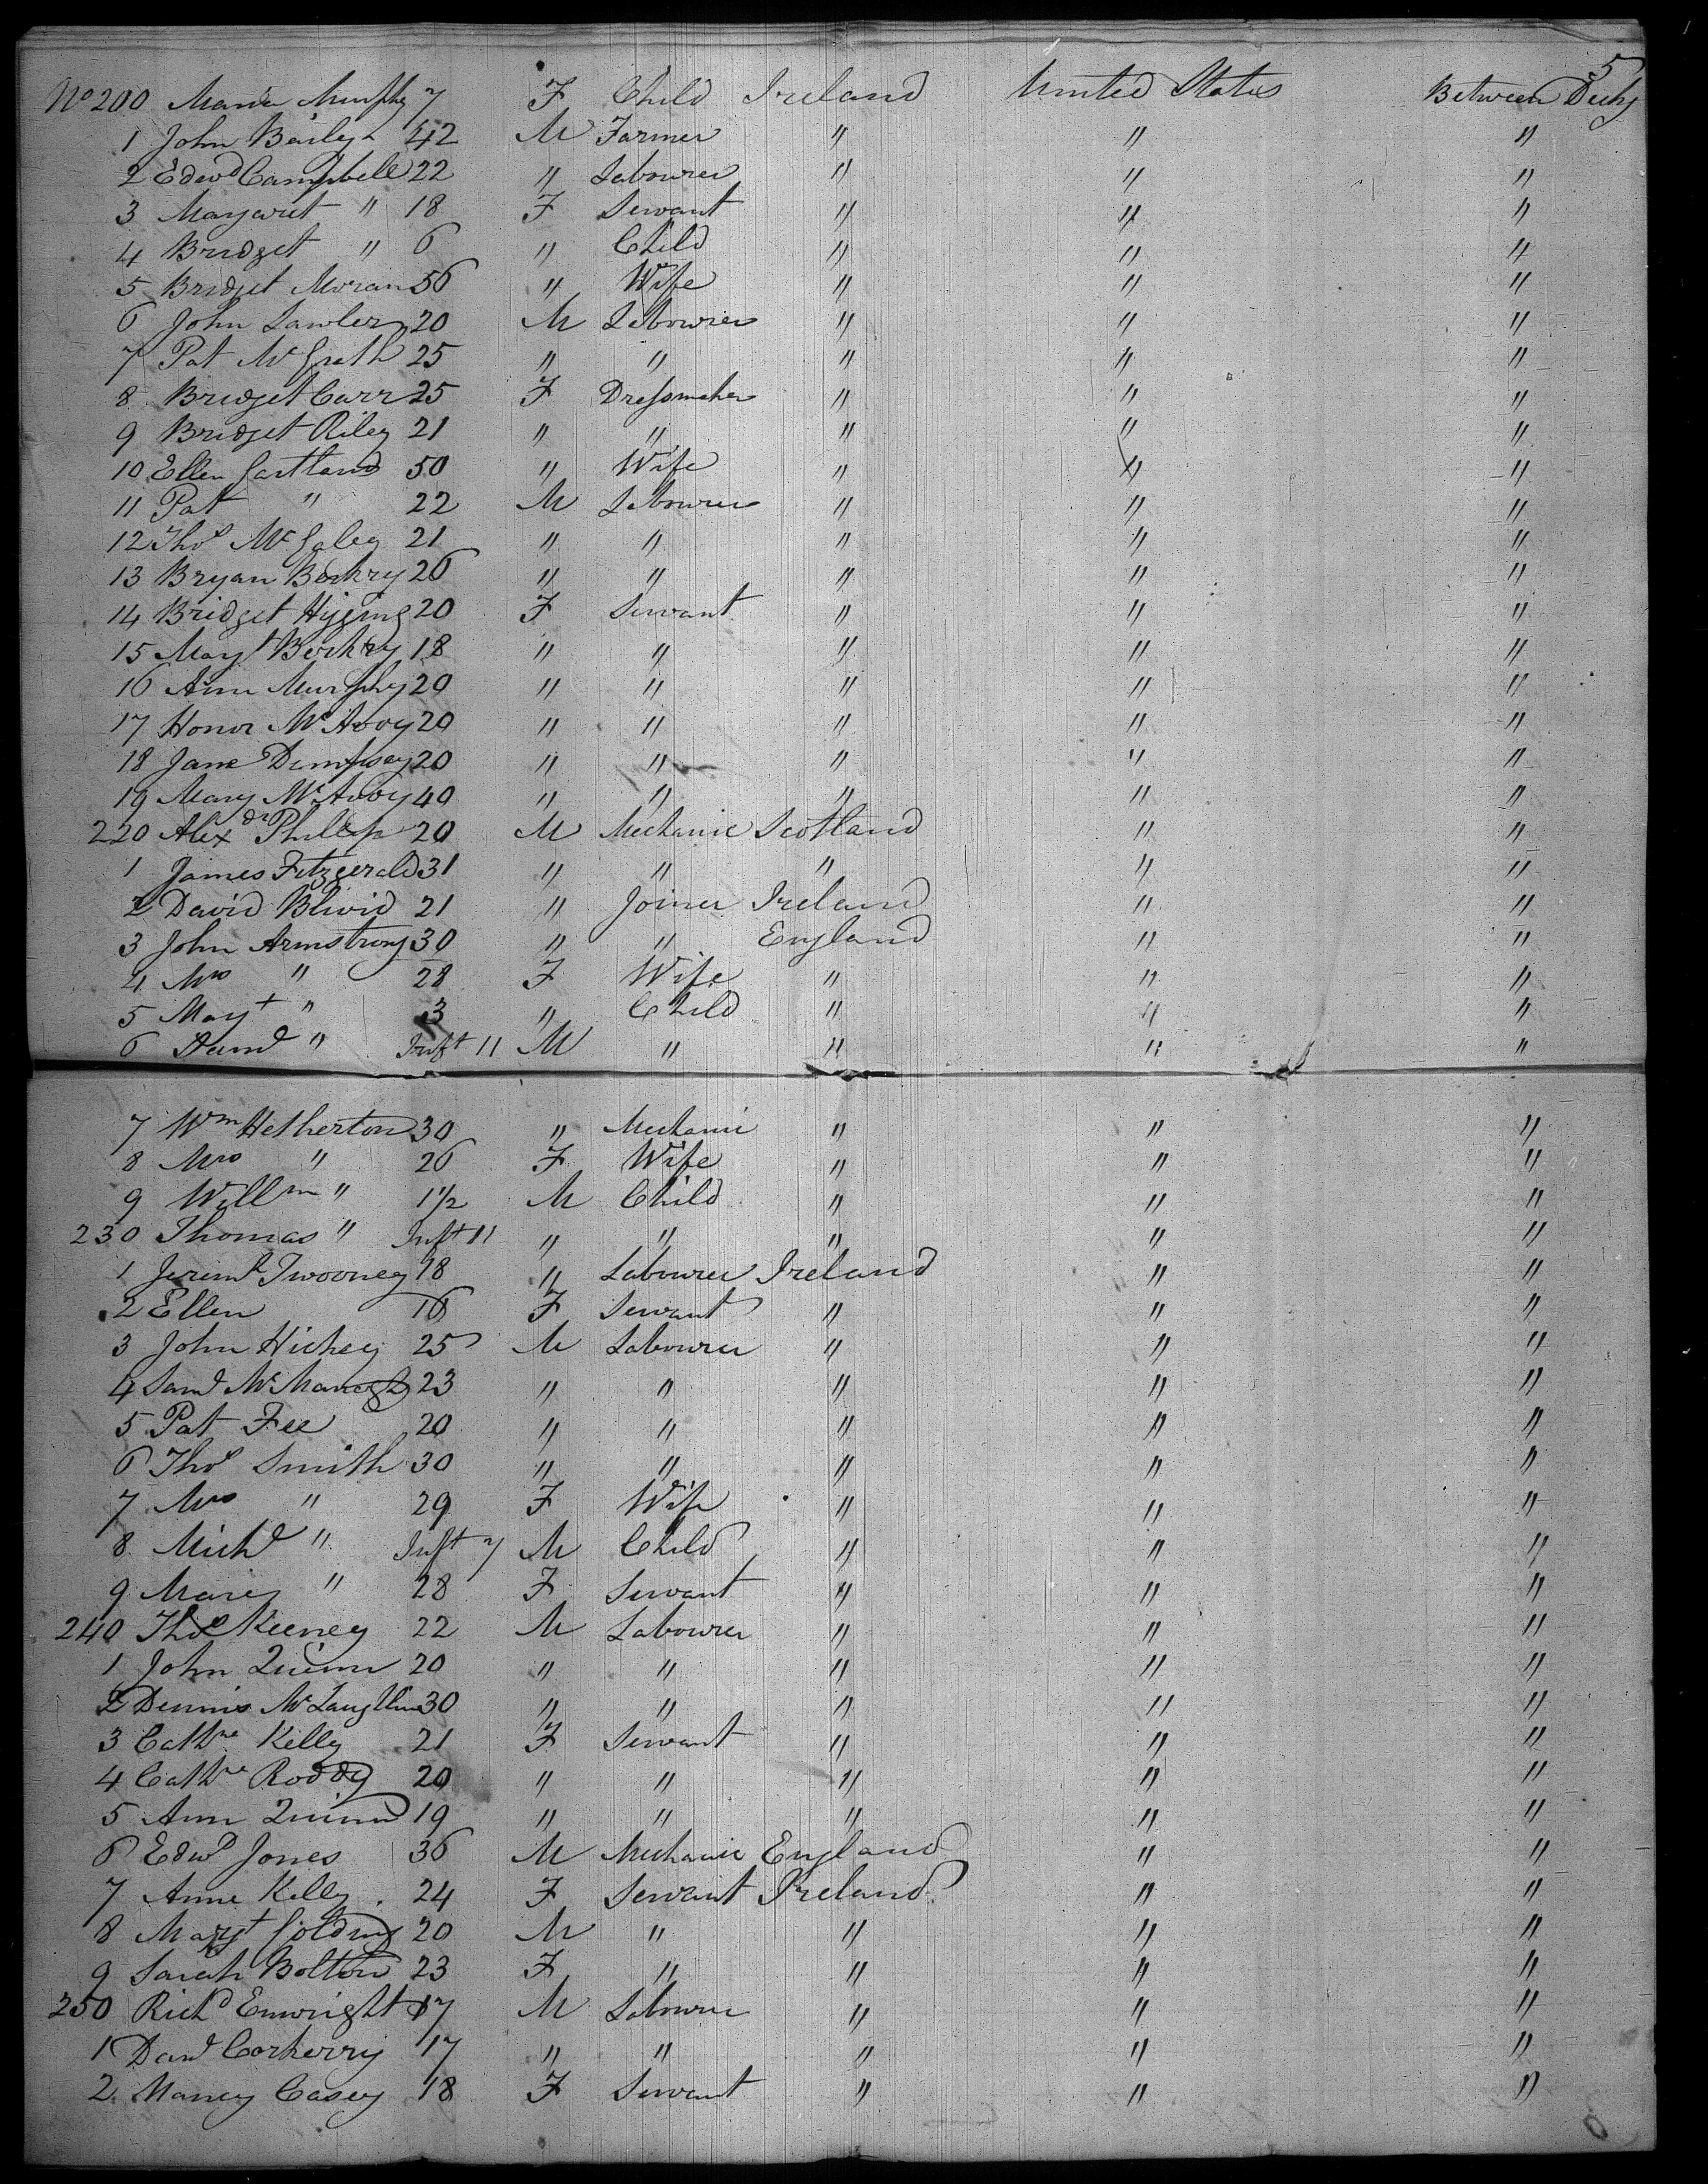 5
No 200 Maria Murphy 7 F Child Ireland United States Between Decks
1 John Baily 42 M Farmer " " "
2 Edwd Campbell 22 " Labourer " " "
3 Margaret " 18 F Servant " " "
4 Bridget " 6 " Child " " "
5 Bridget Moran 56 " Wife " " "
6 John Lawler 20 M Labourer " " "
7 Pat McGrath 25 " " " " "
8 Bridget Carr 25 F Dressmaker " " "
9 Bridget Riley 21 " " " " "
10 Ellen Gartland 50 " Wife " " "
11 Pat " 22 M Labourer " " "
12 Thos McGaley 21 " " " " "
13 Bryan 26 " " " " "
14 Bridget Higgins 20 F Servant " " "
15 Margt 18 " " " " "
16 Ann Murphy 20 " " " " "
17 Honor McAvoy 20 " " " " "
18 Jane Dempsey 20 " " " " "
19 Mary McAvoy 40 " " " " "
220 Alexdr Philip 20 M Mechanic Scotland " "
1 James Fitzgerald 31 " " " " "
2 David 21 " Joiner Ireland " "
3 John Armstrong 30 " " England " "
4 Mrs " 28 F Wife " " "
5 Margt " 3 " Child " " "
6 " Inft 11 M " " " "
7 Wm Hetherton 30 " Mechanic " " "
8 Mrs " 26 F Wife " " "
9 Willm " 1½ M Child " " "
230 Thomas " Inft 11 " " " " "
1 Jeremh Twoomey 18 " Labourer Ireland " "
2 Ellen 16 F Servant " " "
3 John Hickey 25 M Labourer " " "
4 Saml 23 " " " " "
5 Pat Fee 20 " " " " "
6 Thos Smith 30 " " " " "
7 Mrs " 29 F Wife " " "
8 Michl " Inft 7 M Child " " "
9 Mary " 28 F Servant " " "
240 Thos Keeney 22 M Labourer " " "
1 John Quinn 20 " " " " "
2 Dennis McLaughlin 30 " " " " "
3 Cathne Kelly 21 F Servant " " "
4 Cathne Roddy 20 " " " " "
5 Ann Quinn 19 " " " " "
6 Edwd Jones 36 M Mechanic England " "
7 Anne Kelly 24 F Servant Ireland " "
8 Margt Golding 20 M " " " "
9 Sarah Bolton 23 F " " " "
250 Richd Enwright 17 M Labourer " " "
1 Danl Corkerry 17 " " " " "
2 Nancy Casey 18 F Servant " " "